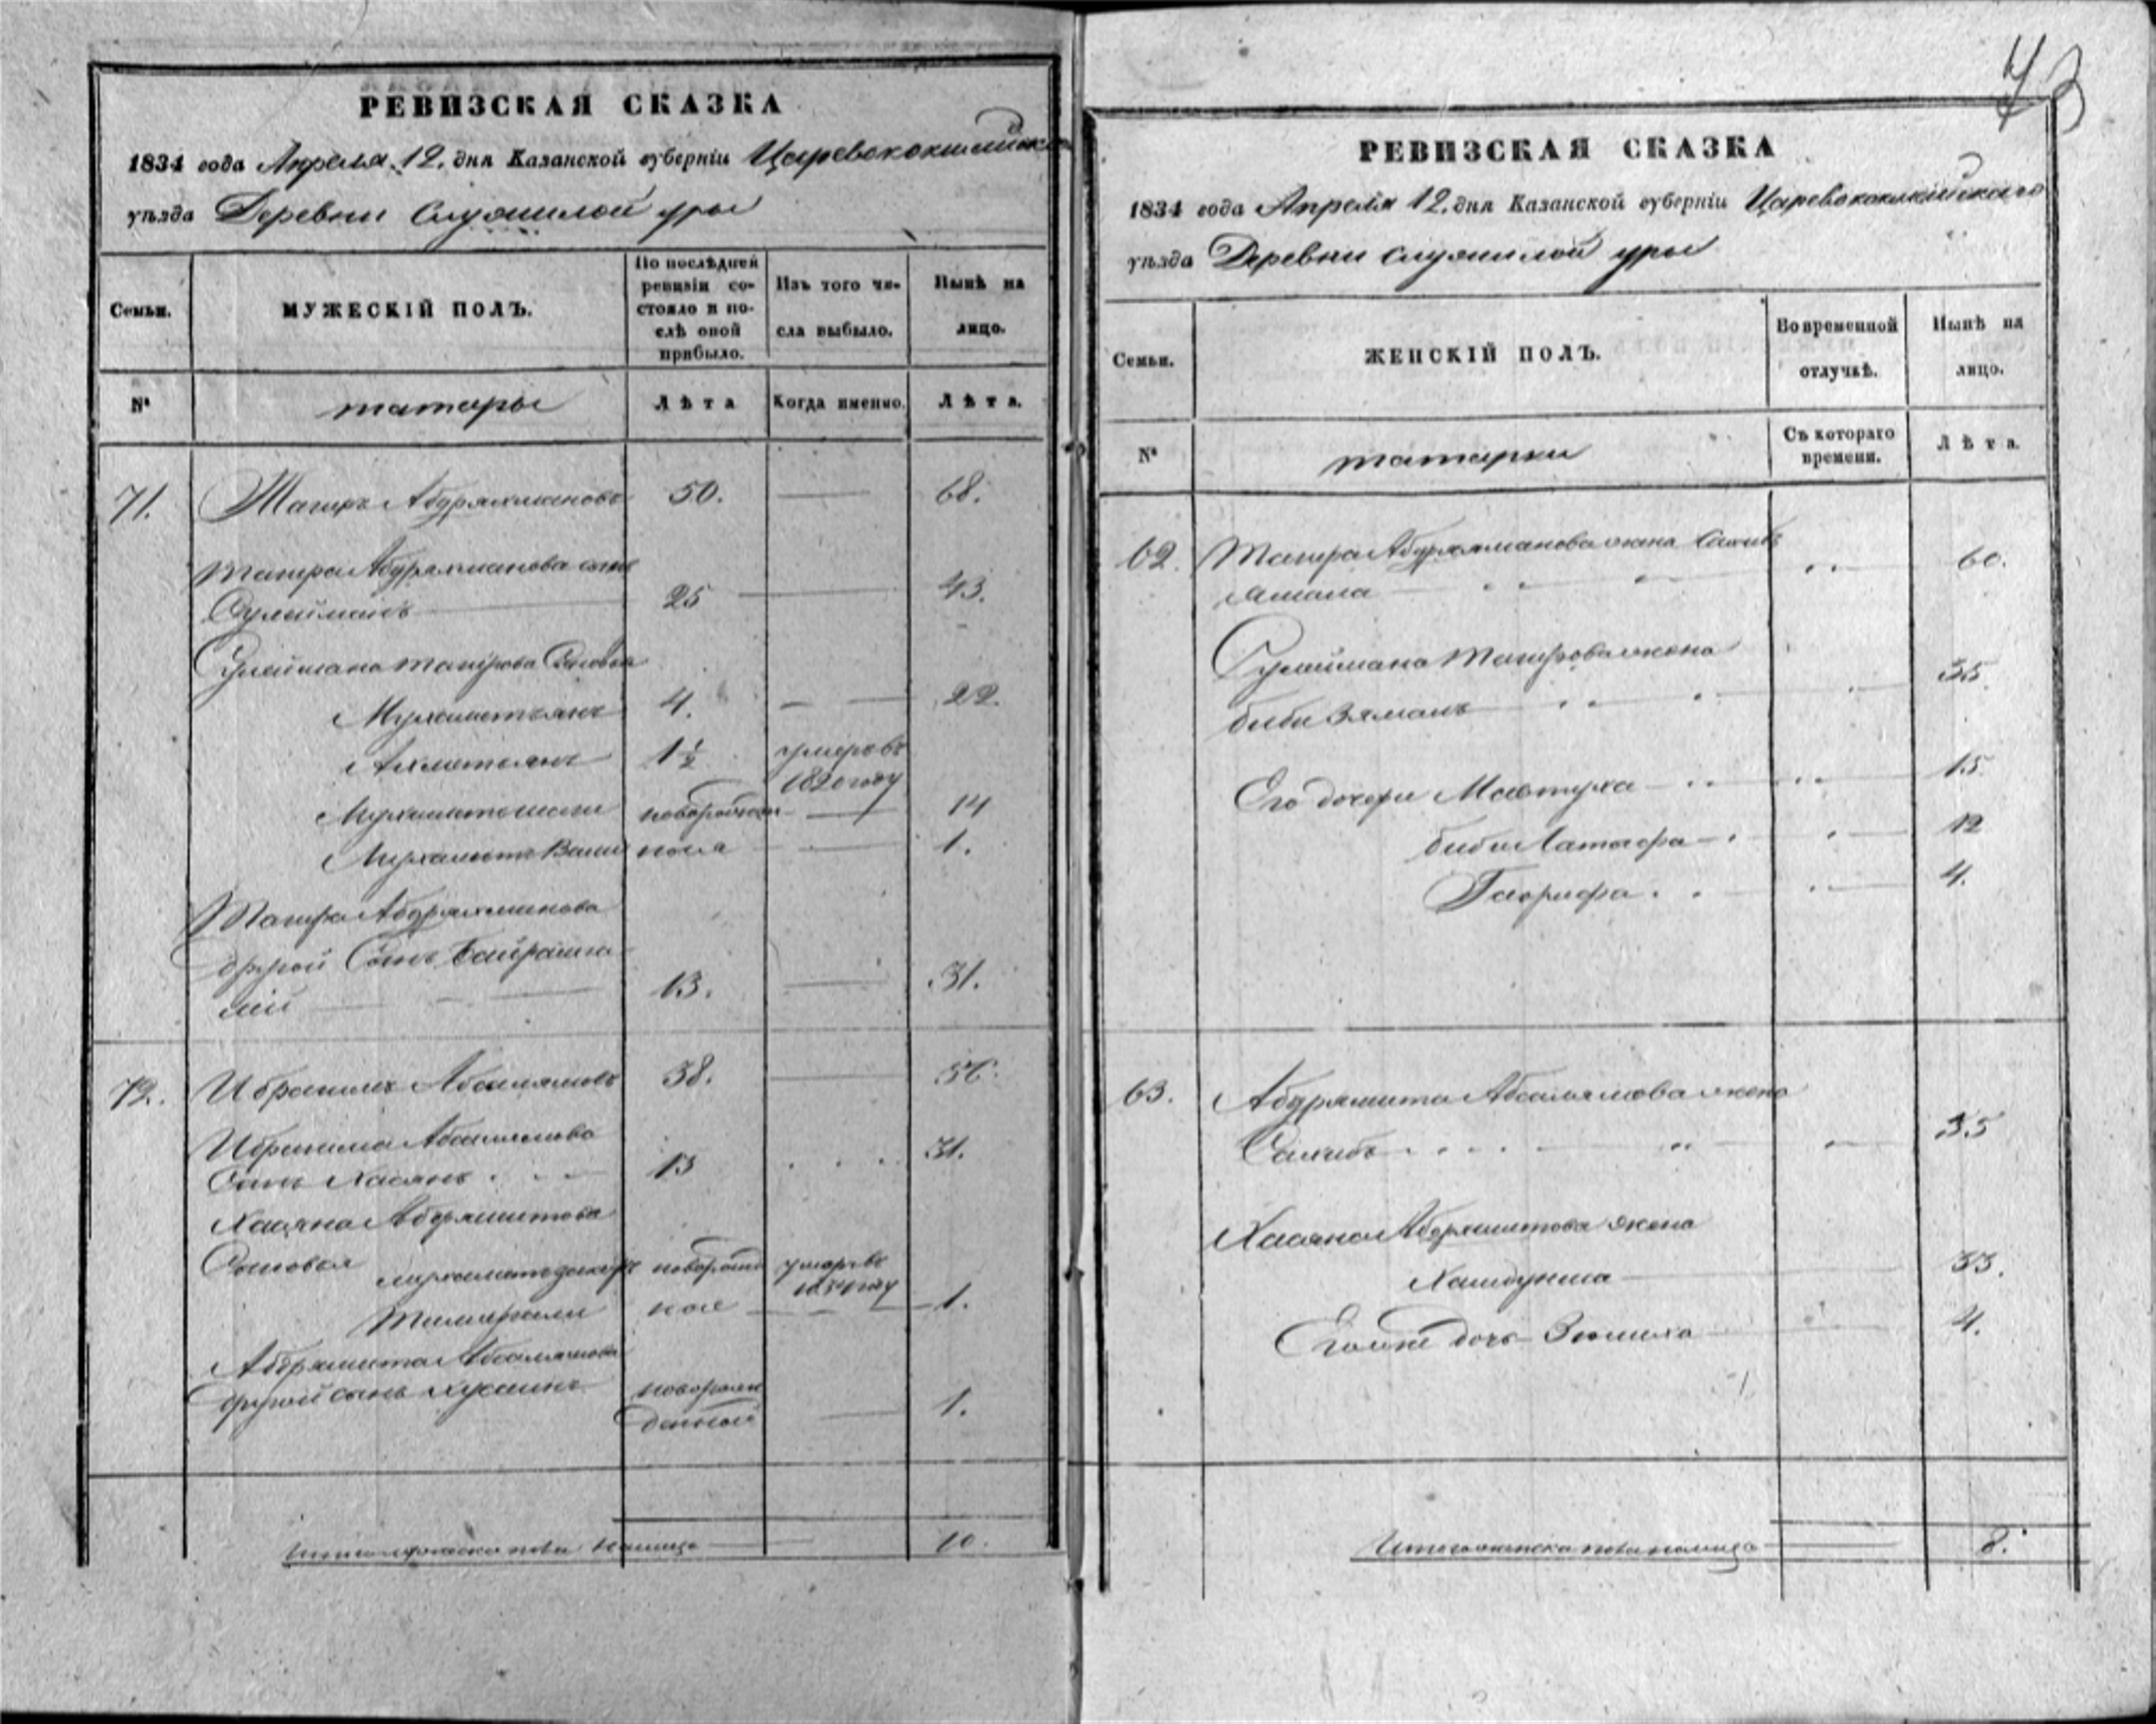 РЕВИЗСКАЯ СКАЗКА
1834 года Апреля 12. дня Казанской губерніи Царевококшайскаго
уѣзда Деревни Служилой уры
Семьи.
МУЖЕСКІЙ ПОЛЪ.
По послѣдней ревизіи со-
стояло и по-
слѣ оной
прибыло.
Изъ того чи-
сла выбыло.
Нынѣ на
лицо.
№
татары
Лѣта
Когда именно.
Лѣта.
71. Тагиръ Абдряхмановъ 50. 68.
Тагира Абдряхманова сынъ
Сулейманъ 25 43.
Сулеймана Тагирова Сыновья
Мухаметьянъ 4. 22.
Ахметьянъ 1½ умеръ въ
1820 году
новорожден 14
Мухаметъ Вали ной 1.
Тагира Абдряхманова
другой Сынъ Байрамга
лій 13. 31.
72. Ибрагимъ Абсалямовъ 38. 56.
Ибрагима Абсалямова
Сынъ Хасянъ 13 31.
Хасяна Абдряшитова
Сыновья новорожд умеръ въ
году
Тимергали ной 1.
Абдряшита Абсалямова
другой сынъ Хусаинъ новорож
денной 1.
Итого мужеска пола налицо 10.
73
РЕВИЗСКАЯ СКАЗКА
1834 года Апреля 12. дня Казанской губерніи Царевококшайскаго
уѣзда Деревни Служилой уры
Семьи.
ЖЕНСКІЙ ПОЛЪ.
Во временной
отлучкѣ.
Нынѣ на
лицо.
№
татарки
Съ котораго
времени.
Лѣта.
62. Тагира Абдряхманова жена Сахибъ
ямала 60.
Сулеймана Тагирова жена
биби Зямалъ 35.
Его дочери Мафтуха 15.
биби Латыфа 12
4.
63. Абдряшита Абсалямова жена
Сахибъ 35
Хасяна Абдряшитова жена
33.
Его же дочь 4.
Итого женска пола налицо 8.